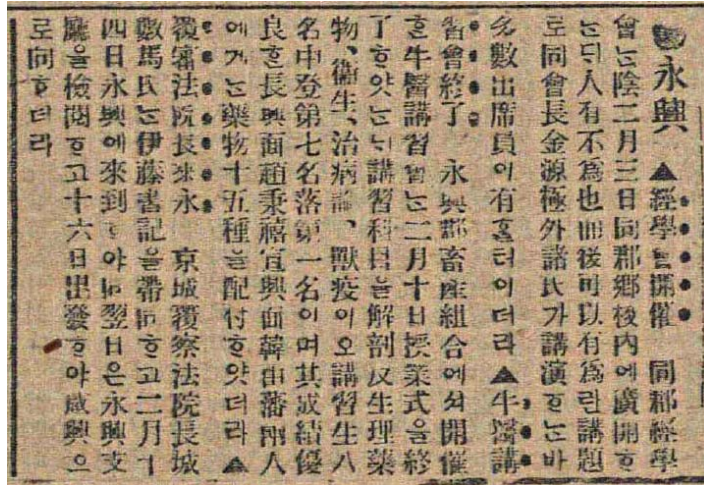 永興 ▲經學會開催 同郡經學
會ᄂᆞᆫ陰二月三日同郡鄕校內에廣開ᄒᆞ
ᄂᆞᆫᄃᆡ人有不爲也而後可以有爲란講題
로同會長金源極外諸氏가講演ᄒᆞᄂᆞᆫ바
多數出席員이有ᄒᆞᆯ터이더라▲牛醫講
習會終了 永興郡畜産組合에셔開催
ᄒᆞᆫ牛醫講習會ᄂᆞᆫ二月十日授業式을終
了ᄒᆞ얏ᄂᆞᆫᄃᆡ講習科目을解剖及生理藥
物、衛生、治病論、獸疫이오講習生八
名中登第七名落第一名이며其成結優
良ᄒᆞᆫ長興面趙秉禧宜興面韓由藩兩人
에게ᄂᆞᆫ藥物十五種을配付ᄒᆞ얏더라▲
覆審法院長來永 京城覆察法院長城
數馬氏ᄂᆞᆫ伊藤書記을帶同ᄒᆞ고二月十
四日永興에來到ᄒᆞ야同翌日은永興支
廳을檢閱ᄒᆞ고十六日出發ᄒᆞ야咸興으
로向ᄒᆞ더라